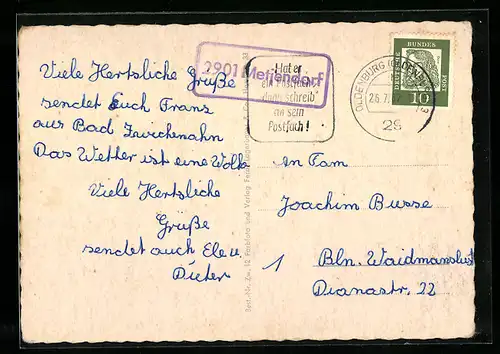 Viele Hertsliche Grüße
sendet Euch Franz
aus Bad Zwischenahn
Das Wetter ist eine Wolke
Viele Hertsliche
Grüße
sendet auch Ele u.
Dieter
2901 Metjendorf
Hat er
ein Postfach,
dann schreib'
an sein
Postfach!
OLDENBURG (OLDENB)
2s
DEUTSCHE BUNDESPOST
10
An Fam
Joachim Busse
1 Bln. Waidmannslust
Dianastr. 22